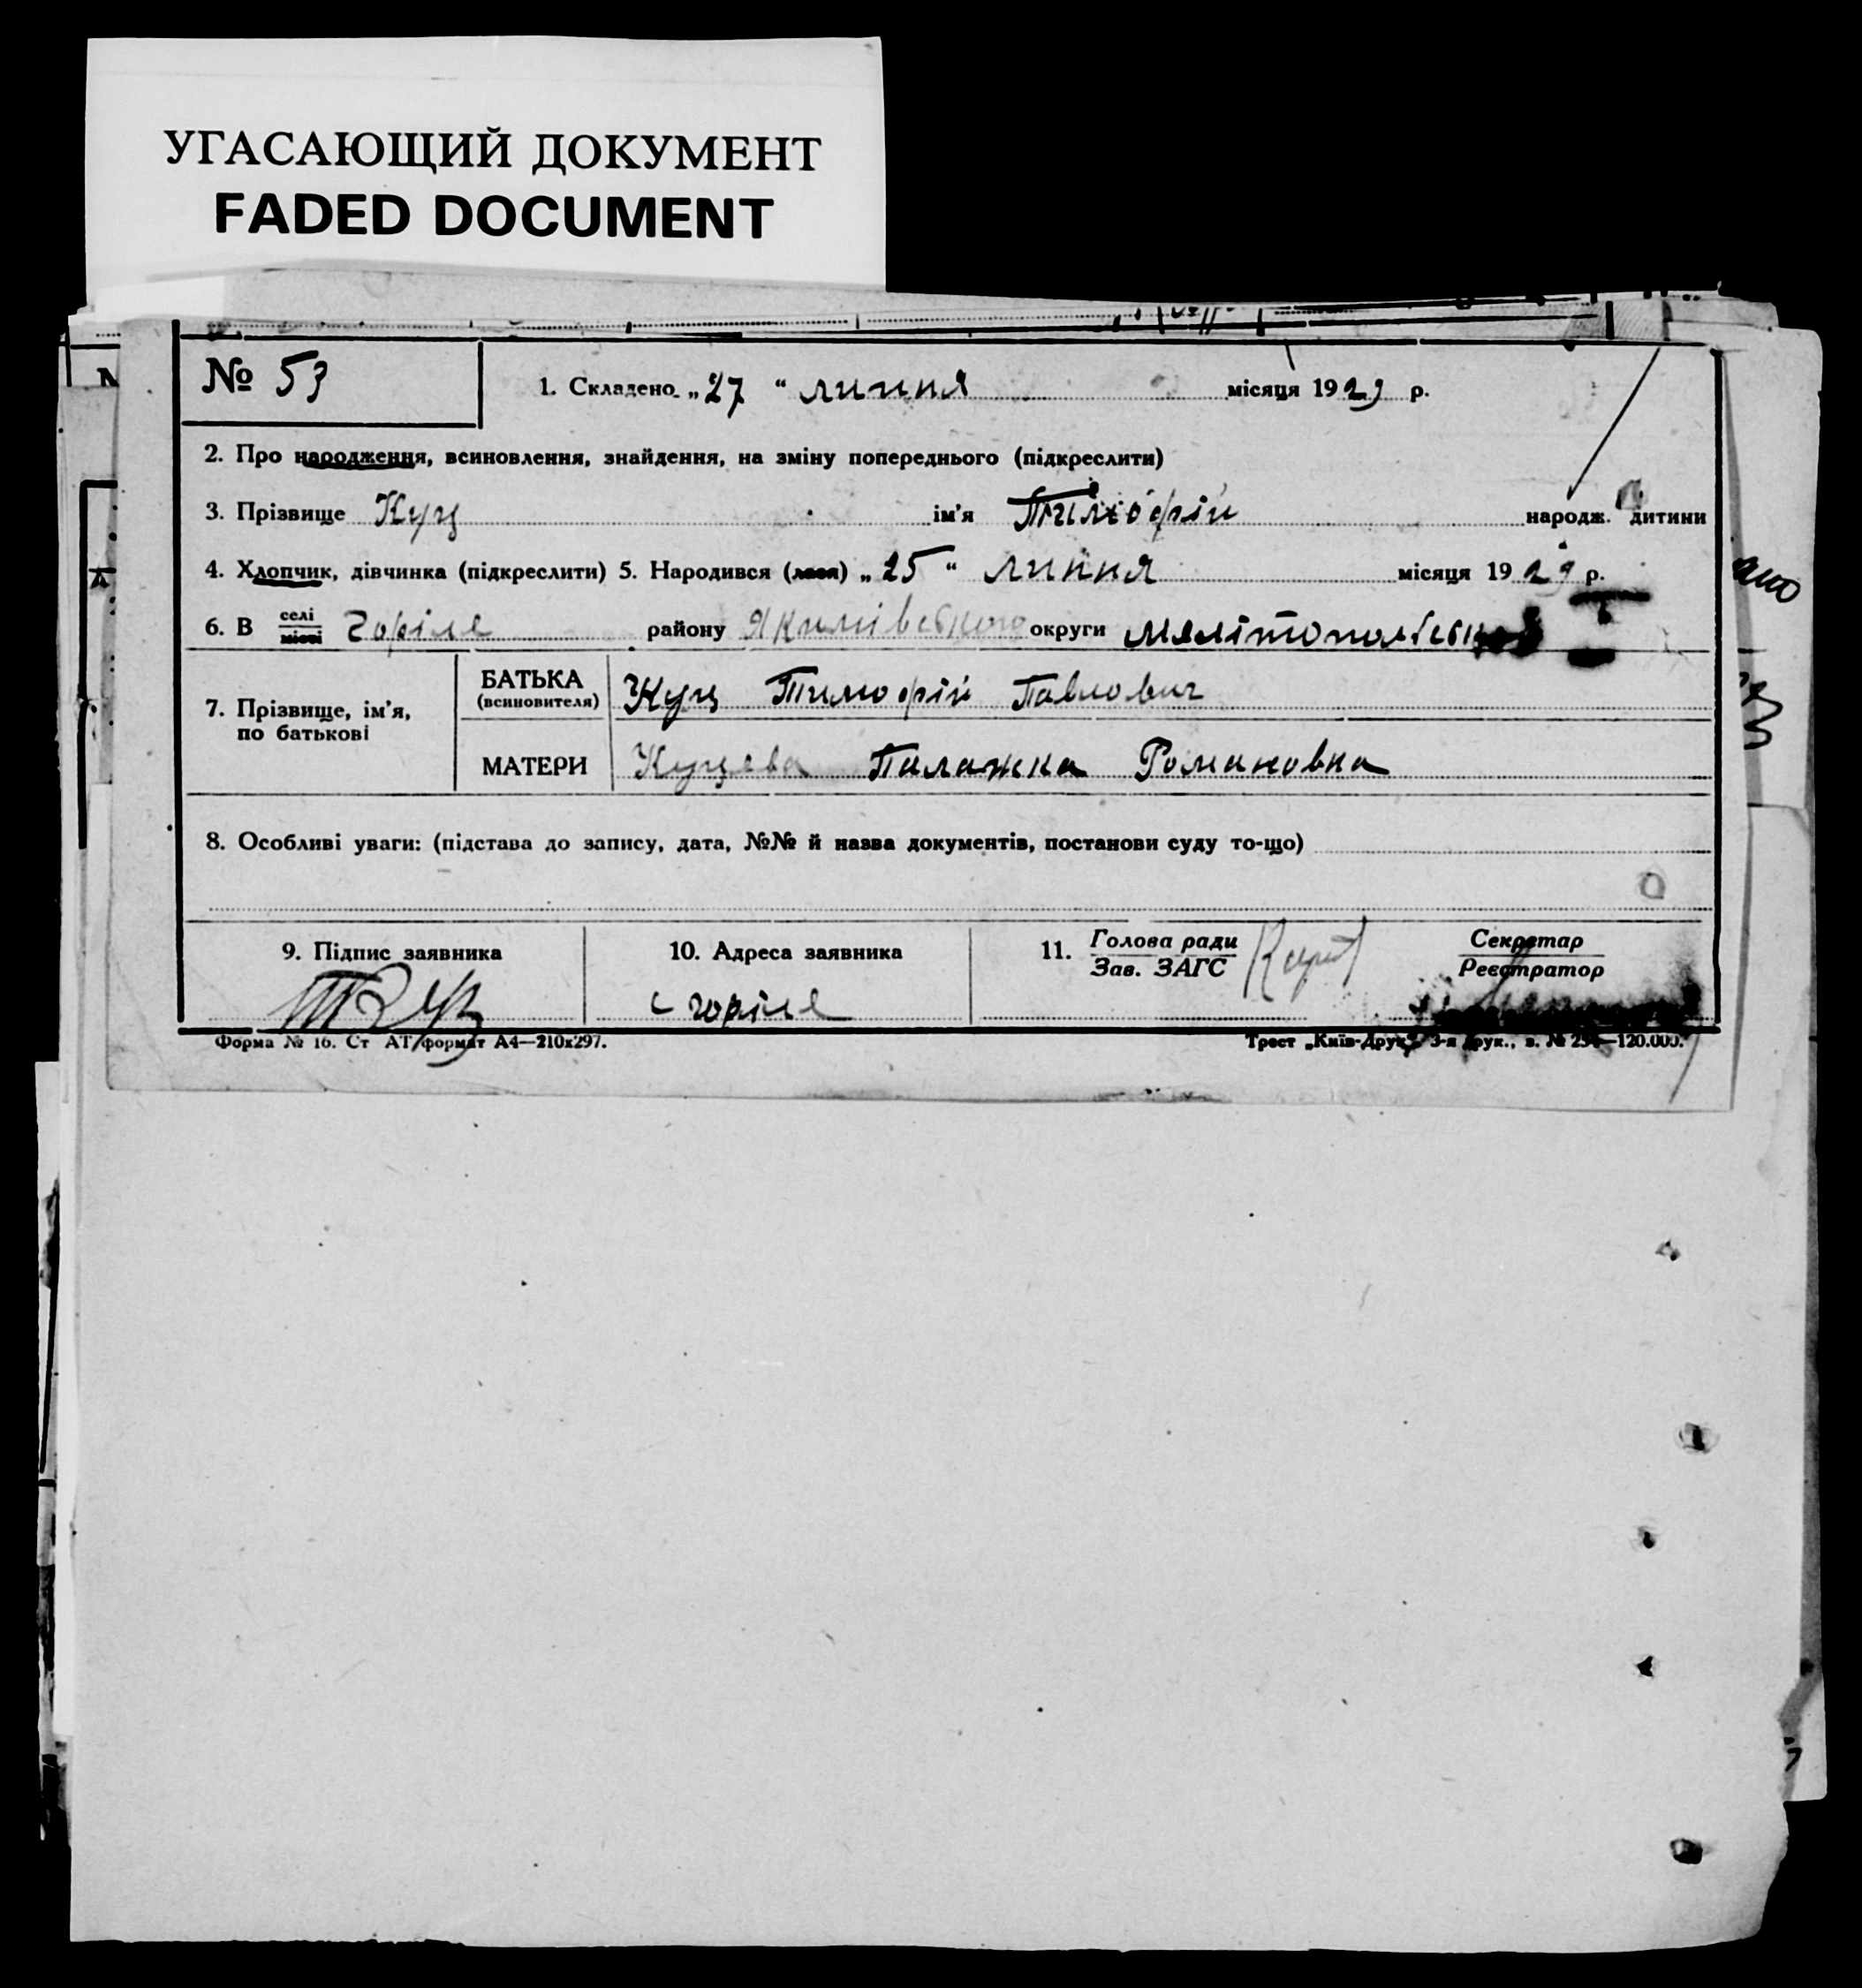 УГАСАЮЩИЙ ДОКУМЕНТ
FADED DOCUMENT
№ 53
1. Складено „27“ липня місяця 1929 р.
2. Про народження, всиновлення, знайдення, на зміну попереднього (підкреслити)
3. Прізвище Куц ім'я Тимофій народж. дитини
4. Хлопчик, дівчинка (підкреслити) 5. Народився (лася) „25“ липня місяця 1929 р.
6. В селі/місті Горіле району Якимівського округи Мелітопольської
7. Прізвище, ім'я, по батькові
БАТЬКА (всиновителя) Куц Тимофій Павлович
МАТЕРИ Куцева Палажка Романовна
8. Особливі уваги: (підстава до запису, дата, №№ й назва документів, постанови суду то-що)
9. Підпис заявника
10. Адреса заявника
с Горіле
11. Голова ради
Зав. ЗАГС
Секретар
Реєстратор
Форма № 16. Ст АТ формат А4—210х297.
Трест „Київ-Друк“ 3-я друк., з. № —120.000.